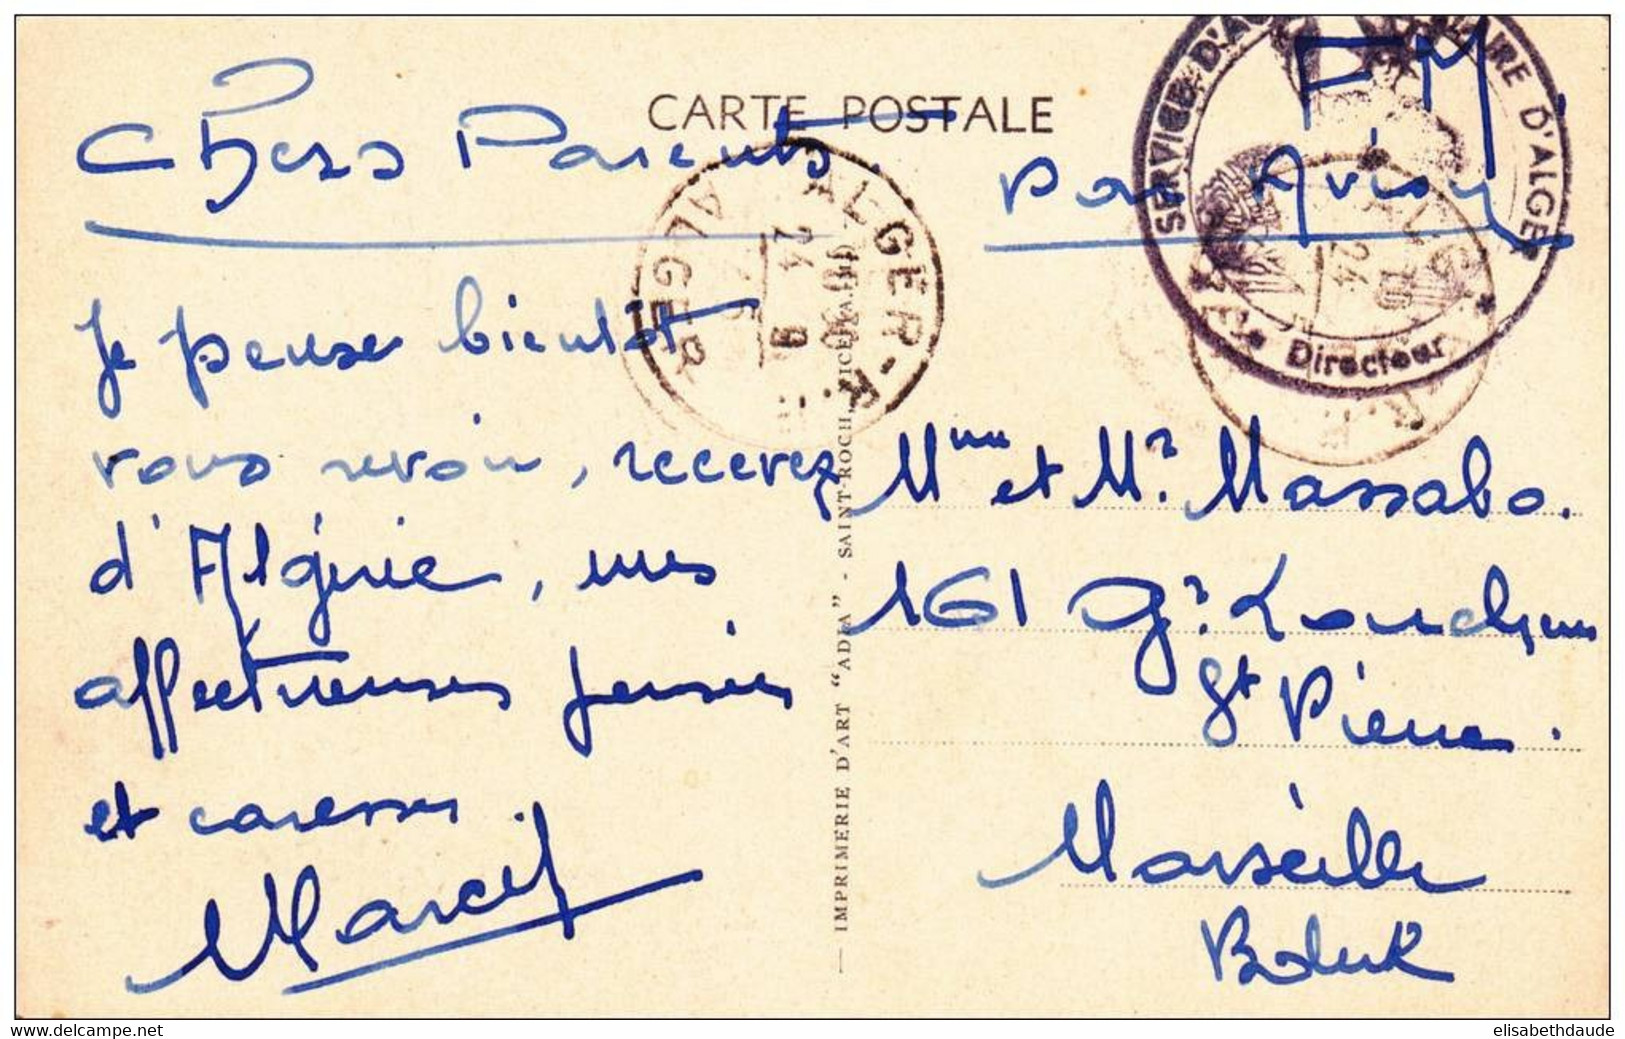 CARTE POSTALE
Chers Parents.
Je pense bientot
vous revoir, recevez
d'Algérie, mes
affectueuses pensées
et caresses.
Marcel
F M.
par Avion
Mme et Mr. Massabo.
161 Gr.
St Pierre.
Marseille
B du R
SERVICE D'A
AIRE D'ALGER
Le Directeur
ALGER-R.P.
24
9
ALGER
— IMPRIMERIE D'ART “ADIA” - SAINT-ROCH, NICE (A.-M.)
www.delcampe.net
elisabethdaude